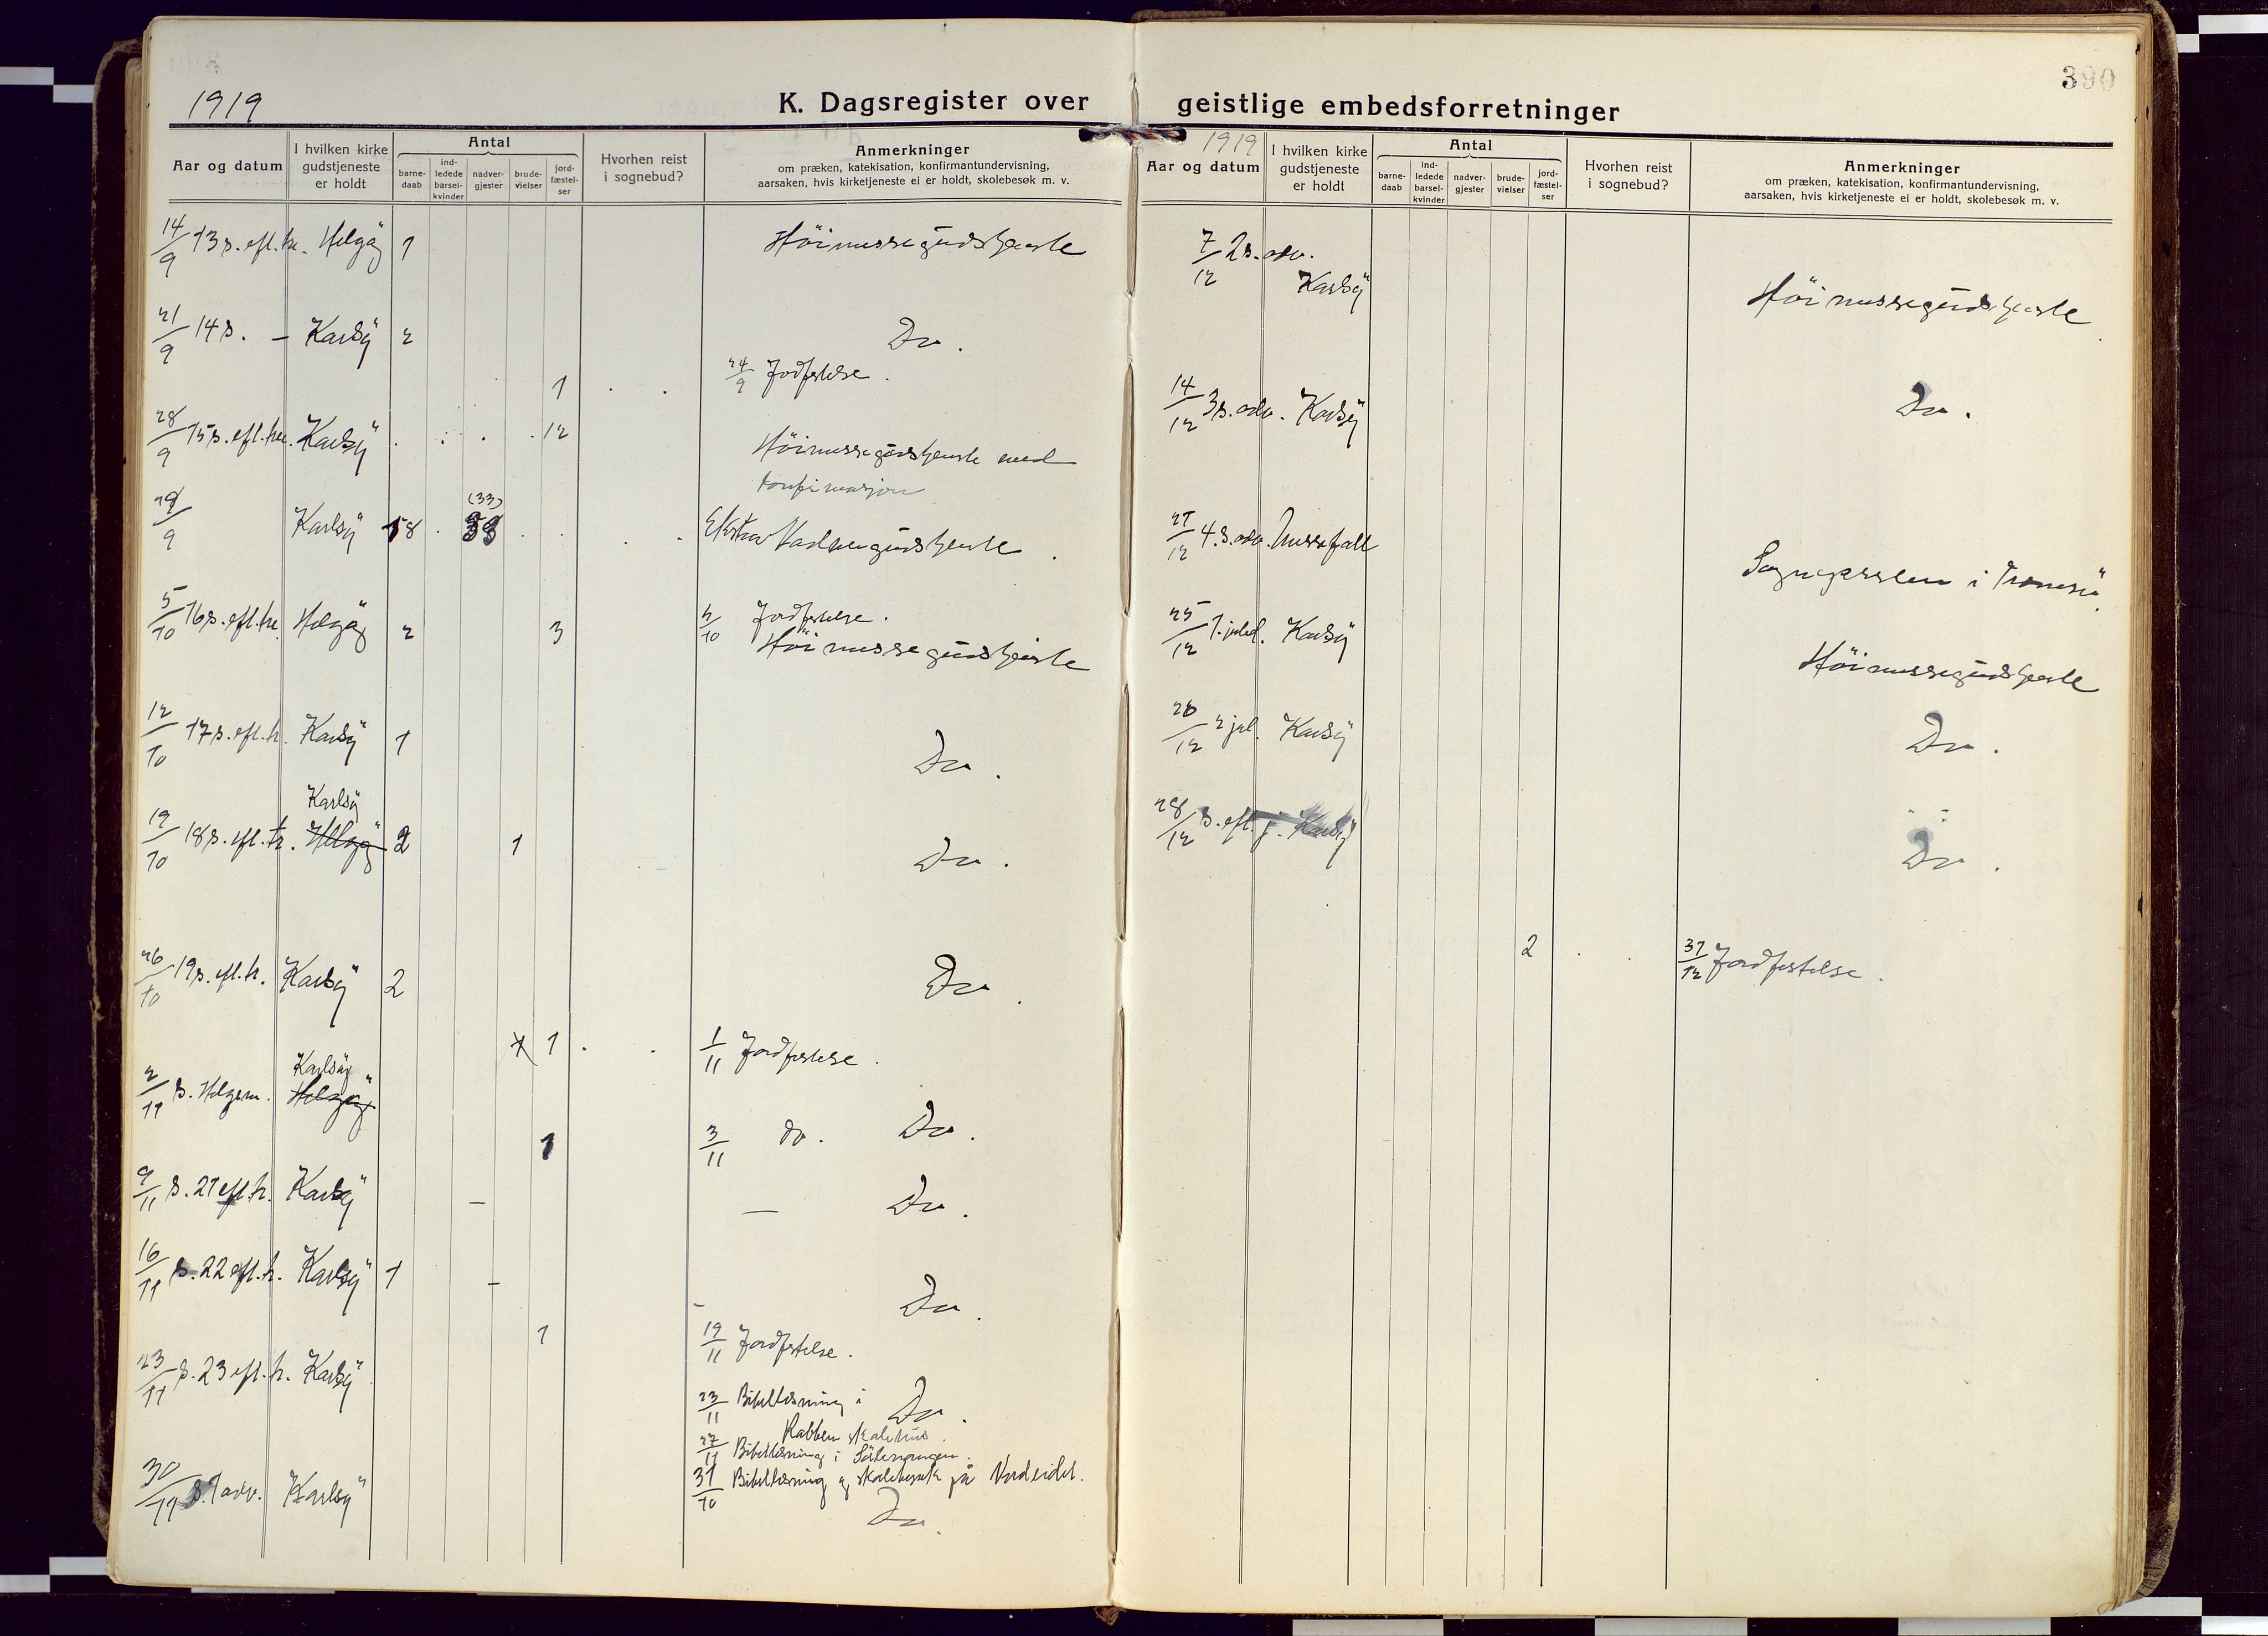 1919
K. Dagsregister over
Aar og datum
I hvilken kirke gudstjeneste er holdt
Antal
barne-daab
ind-ledede barsel-kvinder
nadver-gjester
brude-vielser
jord-fæstel-ser
Hvorhen reist i sognebud?
Anmerkninger
om præken, katekisation, konfirmantundervisning,
aarsaken, hvis kirketjeneste ei er holdt, skolebesøk m. v.
14/9 13 s. eft. tr. Helgöy 1 Höimessegudstjeneste
21/9 14 s. – Karlsöy 2 Do.
1 24/9 Jordfestelse.
28/9 15 s. eft. tr. Karlsöy 12 Höimessegudstjeneste med
konfirmasjon
(33)
29/9 Karlsöy 18 33 Ekstra Nadvergudstjeneste.
5/10 16 s. eft. tr. Helgöy 2 3 2/10 Jordfestelse.
Höimessegudstjeneste
12/10 17 s. eft. tr. Karlsöy 1 Do.
Karlsöy
19/10 18 s. eft. tr. Helgöy 2 1 Do.
26/10 19 s. eft. tr. Karlsöy 2 Do.
1 1 1/11 Jordfestelse.
Karlsöy
2/11 s. Helgem. Helgöy
1 3/11 do. Do.
9/11 S. 21 eft. tr. Karlsöy – – Do.
16/11 s. 22 eft. tr. Karlsöy 1 – Do.
1 19/11 Jordfestelse.
23/11 S. 23 eft. tr. Karlsöy
23/11 Bibellesning i Do.
Rabben skolehus.
27/11 Bibellesning i
31/10 Bibellesning og skolebesök på Nordeidet.
30/11 S. 1 adv. Karlsöy Do.
390
geistlige embedsforretninger
1919
Aar og datum
I hvilken kirke gudstjeneste er holdt
Antal
barne-daab
ind-ledede barsel-kvinder
nadver-gjester
brude-vielser
jord-fæstel-ser
Hvorhen reist i sognebud?
Anmerkninger
om præken, katekisation, konfirmantundervisning,
aarsaken, hvis kirketjeneste ei er holdt, skolebesøk m. v.
7/12 2 s. adv.
Karlsöy Höimessegudstjeneste.
14/12 3 s. adv. Karlsöy Do.
21/12 4. s. adv. Messefall
Sognepresten i Tromsö.
25/12 1. juled. Karlsöy Höimessegudstjeneste
26/12 2 jul. Karlsöy Do.
28/12 s. eft. j. Karlsöy Do.
2 31/12 Jordfestelse.